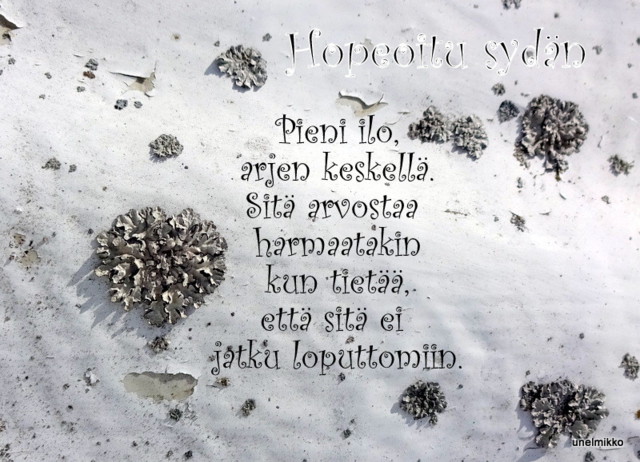 Hopeoitu sydän
Pieni ilo,
arjen keskellä.
Sitä arvostaa
harmaatakin
kun tietää,
että sitä ei
jatku loputtomiin.
unelmikko